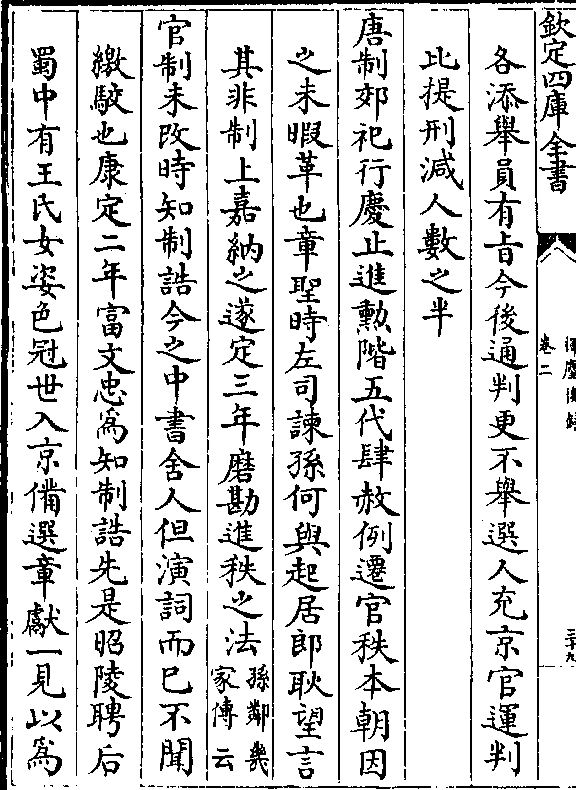 欽定四庫全書
卷二
各添舉員有旨今後通判更不舉選人充京官運判
比提刑減人數之半
唐制郊祀行慶止進勲階五代肆赦例遷官秩本朝因
之未暇革也章聖時左司諫孫何與起居郎耿望言
其非制上嘉納之遂定三年磨勘進秩之法孫鄰幾家傳云
官制未改時知制誥今之中書舍人但演詞而已不聞
繳駮也康定二年富文忠爲知制誥先是昭陵聘后
蜀中有王氏女姿色冠世入京備選章獻一見以爲